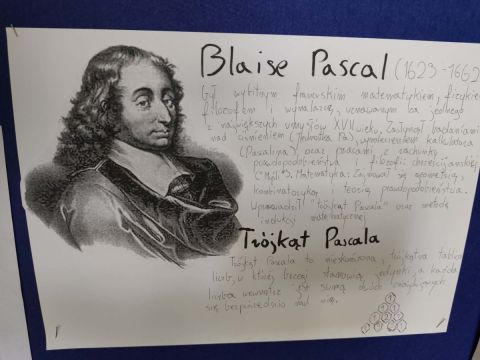 Blaise Pascal (1623-1662)
Był wybitnym francuskim matematykiem, fizykiem
filozofem i wynalazcą, uznawanym za jednego
z największych umysłów XVII wieku. Zasłynął badaniami
nad ciśnieniem (Jednostka Pa), wynalezieniem kalkulatora
(Pascalina), oraz pracami z rachunku
prawdopodobieństwa i filozofii chrześcijańskiej
("Myśli"). Matematyka: Zajmował się geometrią,
kombinatoryką i teorią prawdopodobieństwa.
Wprowadził "trójkąt Pascala" oraz metodę
indukcji matematycznej.
Trójkąt Pascala
Trójkąt Pascala to nieskończona, trójkątna tablica
liczb, w której brzegi stanowią jedynki, a każda
liczba wewnątrz jest sumą dwóch znajdujących
się bezpośrednio nad nią.